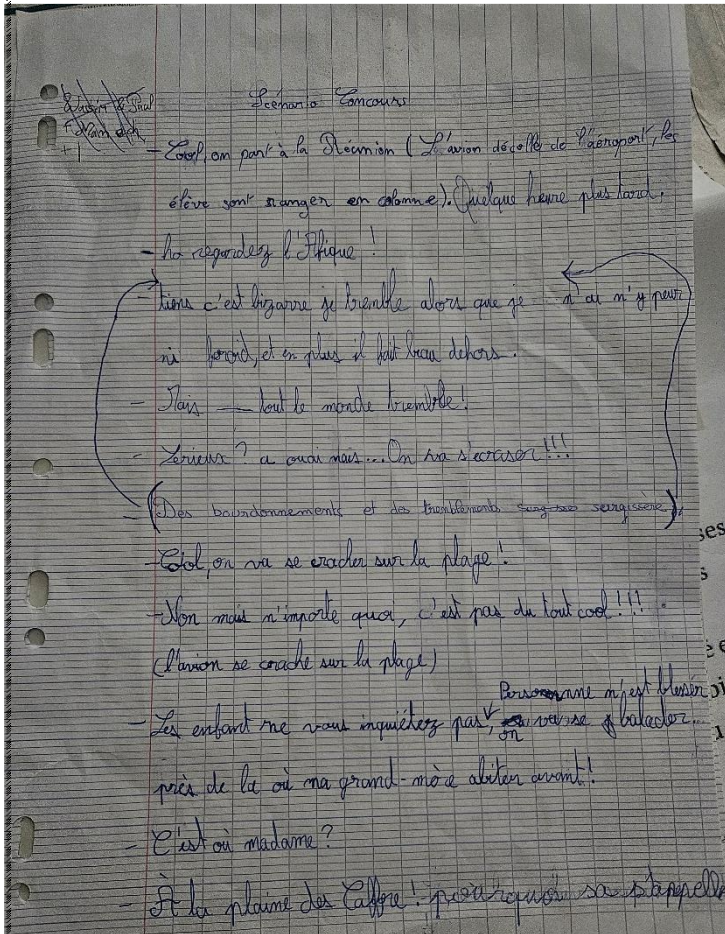 Scénario Concours
+1
- Cool, on part à la Réunion ( L'avion décolle de l'aéroport, les
élève sont ranger en colonne). Quelque heure plus tard.
- ha regardez l'Afique !
- tiens c'est bizarre je tremble alors que je n'ai n'y peur
ni froid, et en plus il fait beau dehors.
- Mais tout le monde tremble !
- Serieux ? a ouai mais... On va s'ecraser !!!
- (Des bourdonnements et des tremblements surgissère)
- Cool, on va se cracher sur la plage !
- Non mais n'importe quoi, c'est pas du tout cool !!!
(l'avion se crache sur la plage)
Personne n'est blesser
- Les enfant ne vous inquiétez pas, on va se balader
près de la où ma grand-mère abiter avant !
- C'est où madame ?
- À la plaine des Caffre ! pourquoi sa s'appelle
ses
s